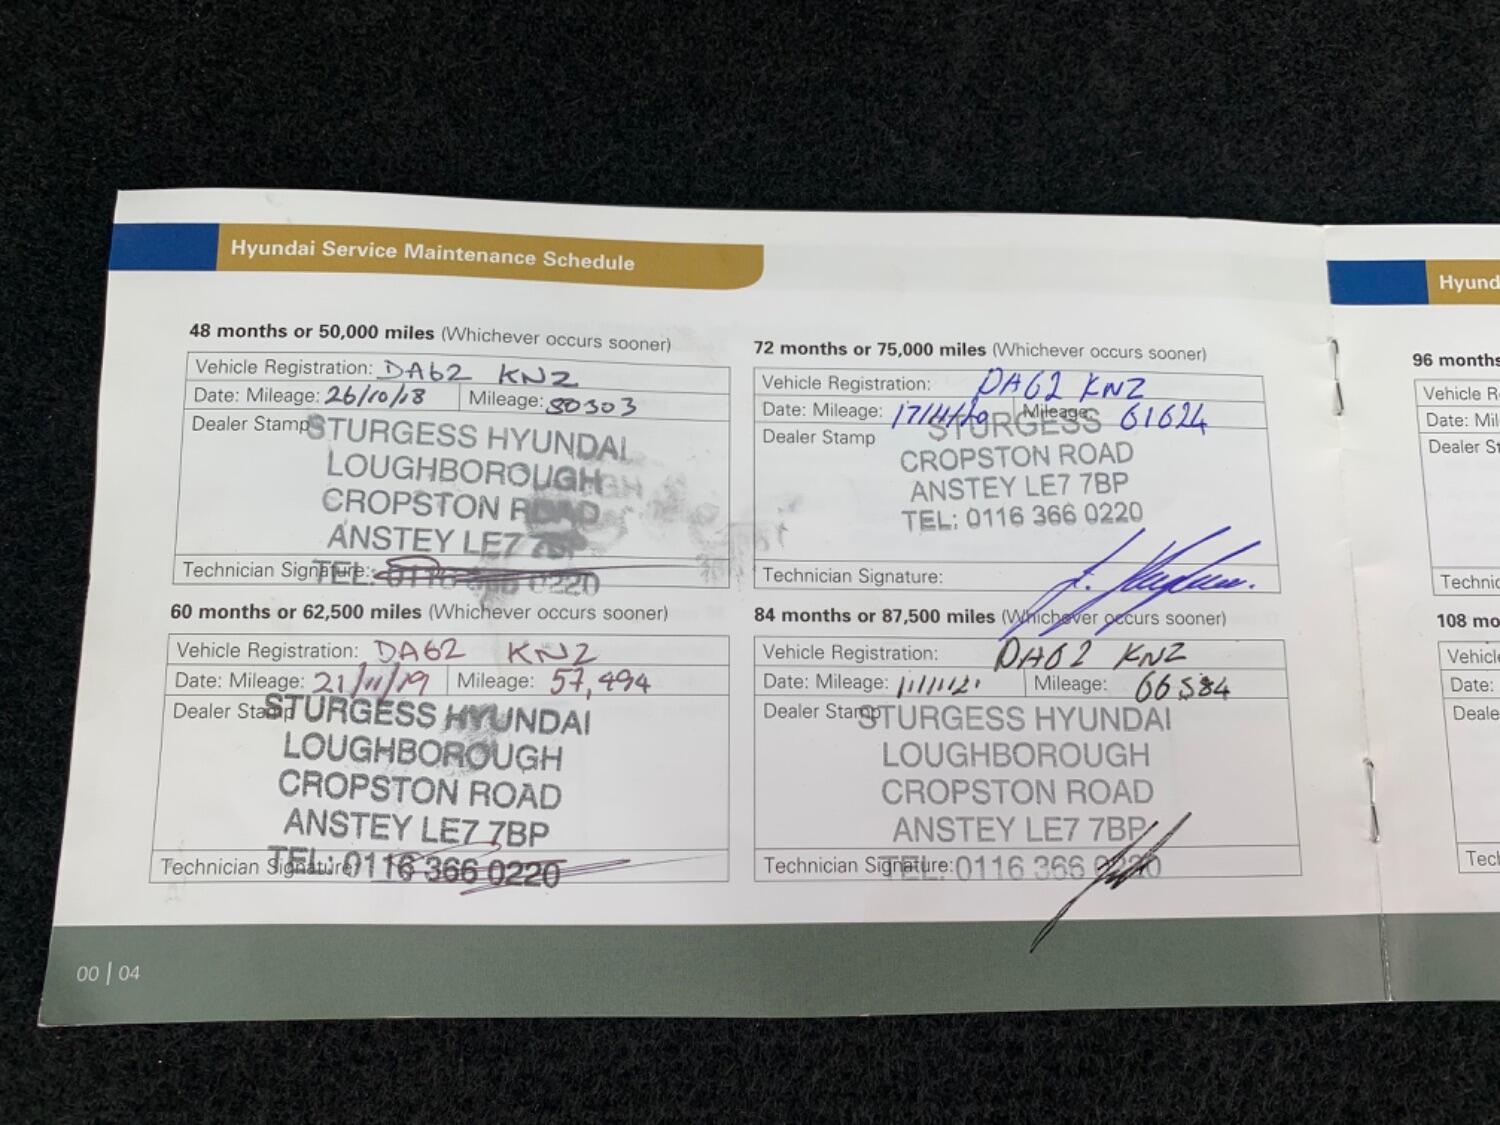 Hyundai Service Maintenance Schedule
48 months or 50,000 miles (Whichever occurs sooner)
Vehicle Registration: DA62 KNZ
Date: Mileage: 26/10/18 Mileage: 50303
Dealer Stamp
STURGESS HYUNDAI
LOUGHBOROUGH
CROPSTON ROAD
ANSTEY LE7
Technician Signature:
TEL: 0116 366 0220
60 months or 62,500 miles (Whichever occurs sooner)
Vehicle Registration: DA62 KNZ
Date: Mileage: 21/11/19 Mileage: 57,494
Dealer Stamp
STURGESS HYUNDAI
LOUGHBOROUGH
CROPSTON ROAD
ANSTEY LE7 7BP
Technician Signature:
TEL: 0116 366 0220
72 months or 75,000 miles (Whichever occurs sooner)
Vehicle Registration: DA62 KNZ
Date: Mileage: 17/11/20 Mileage: 61624
Dealer Stamp
STURGESS
CROPSTON ROAD
ANSTEY LE7 7BP
TEL: 0116 366 0220
Technician Signature:
84 months or 87,500 miles (Whichever occurs sooner)
Vehicle Registration: DA62 KNZ
Date: Mileage: Mileage: 66584
Dealer Stamp
STURGESS HYUNDAI
LOUGHBOROUGH
CROPSTON ROAD
ANSTEY LE7 7BP
Technician Signature:
TEL: 0116 366 0220
00 | 04
Hyund
96 months
Vehicle R
Date: Mil
Dealer St
Technic
108 mo
Vehicl
Date:
Deale
Tech